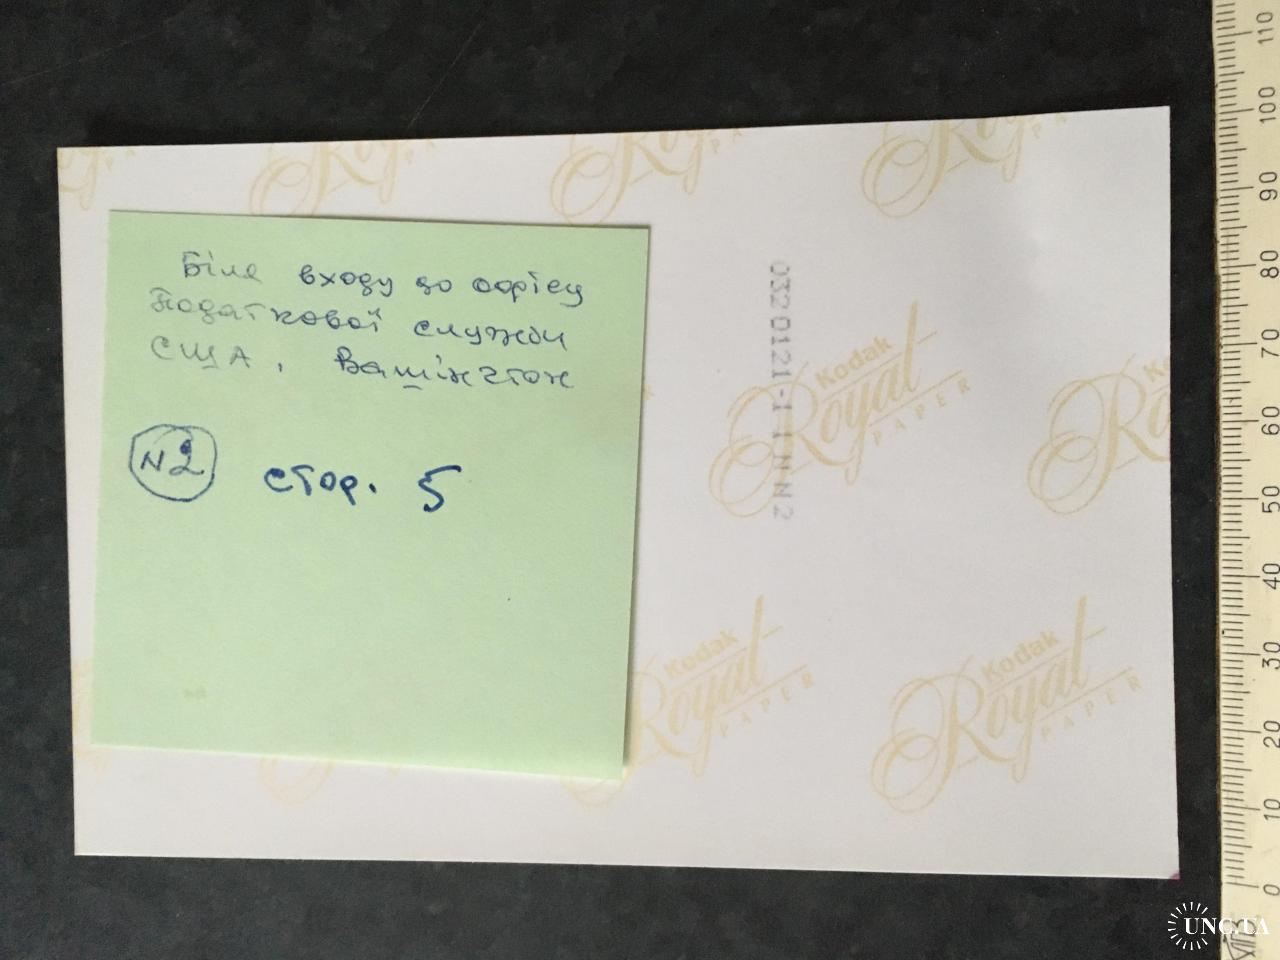 Біля входу до офісу
Податкової служби
США, Вашінгтон
N2 стор. 5
0320121-1 1 N N 2
Royal
Royal
Royal
Kodak
Royal
PAPER
Kodak
Royal
PAPER
Kodak
Royal
PAPER
110
100
90
80
70
60
50
40
30
20
10
0
UNC.UA